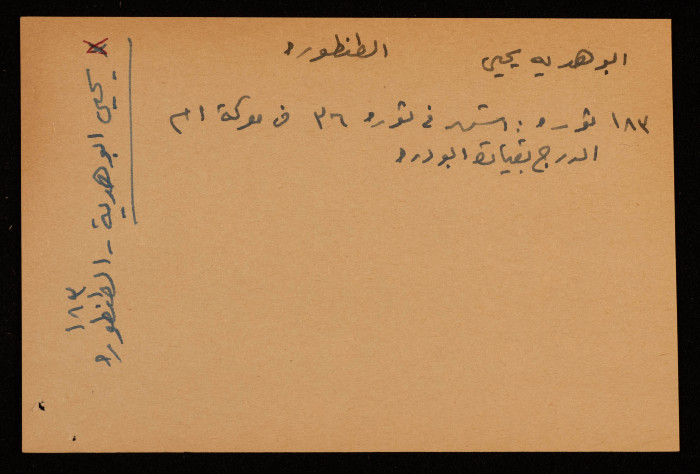 ابوهديه يحيى الطنطوره
١٨٣ ثوره : استشهد في ثورة ٣٦ في معركة ام
الدرج بقيادة ابو دره
يحيى ابوهدية - الطنطوره
١٨٣